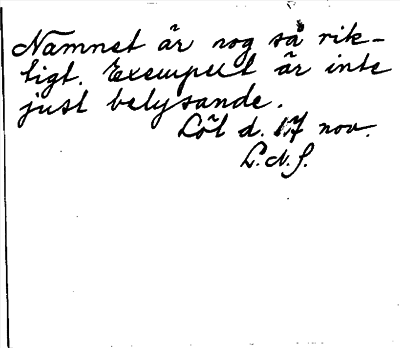 Namnet är nog så rik-
tigt. Exemplet är inte
just belysande.
Löt d. 17 nov.
L. N. J.